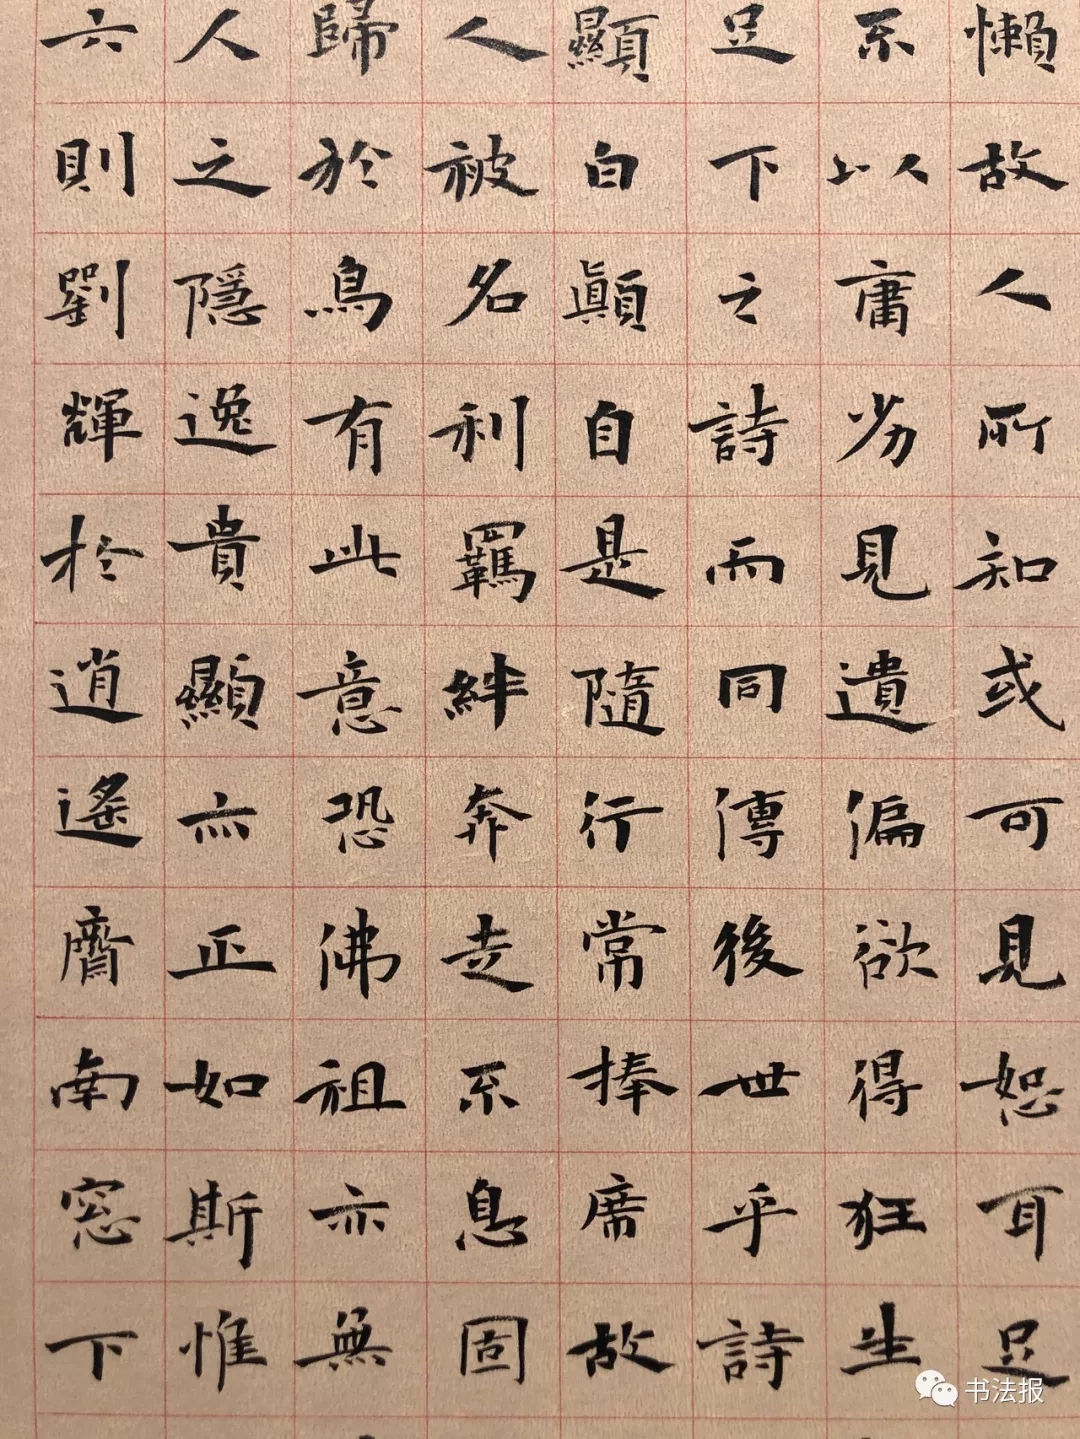 懶故人所知或可見恕耳足
不以庸劣見遺偏欲得狂生
足下之詩而同傳後世乎詩
顯白顛自是隨行常捧席故
人被名利羈絆奔走不息固
歸於鳥有此意恐佛祖亦無
人之隱逸貴顯亦正如斯惟
六則劉輝於逍遙齋南窓下
书法报